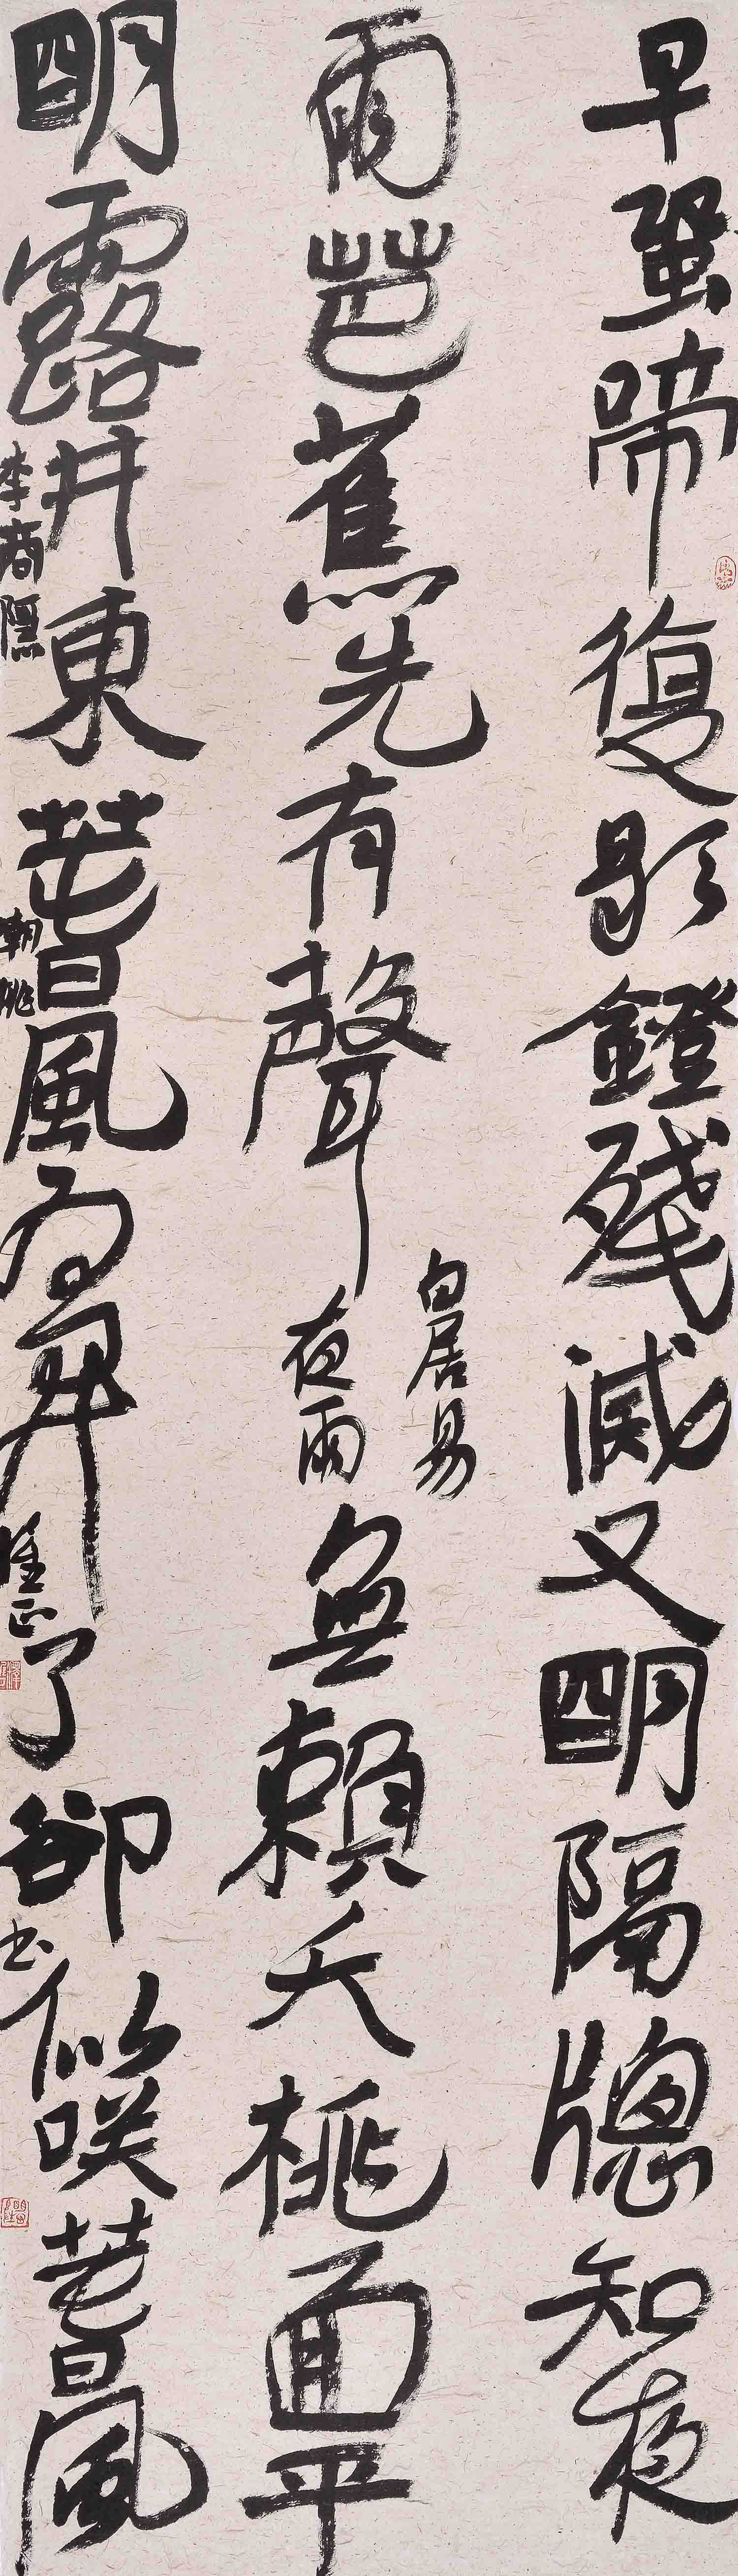 早蛩啼復歇鐙殘滅又明隔牕知夜
雨芭蕉先有聲
白居易
夜雨
無賴夭桃面平
明露井東萅風為開了卻似咲萅風
李商隱 嘲桃 書